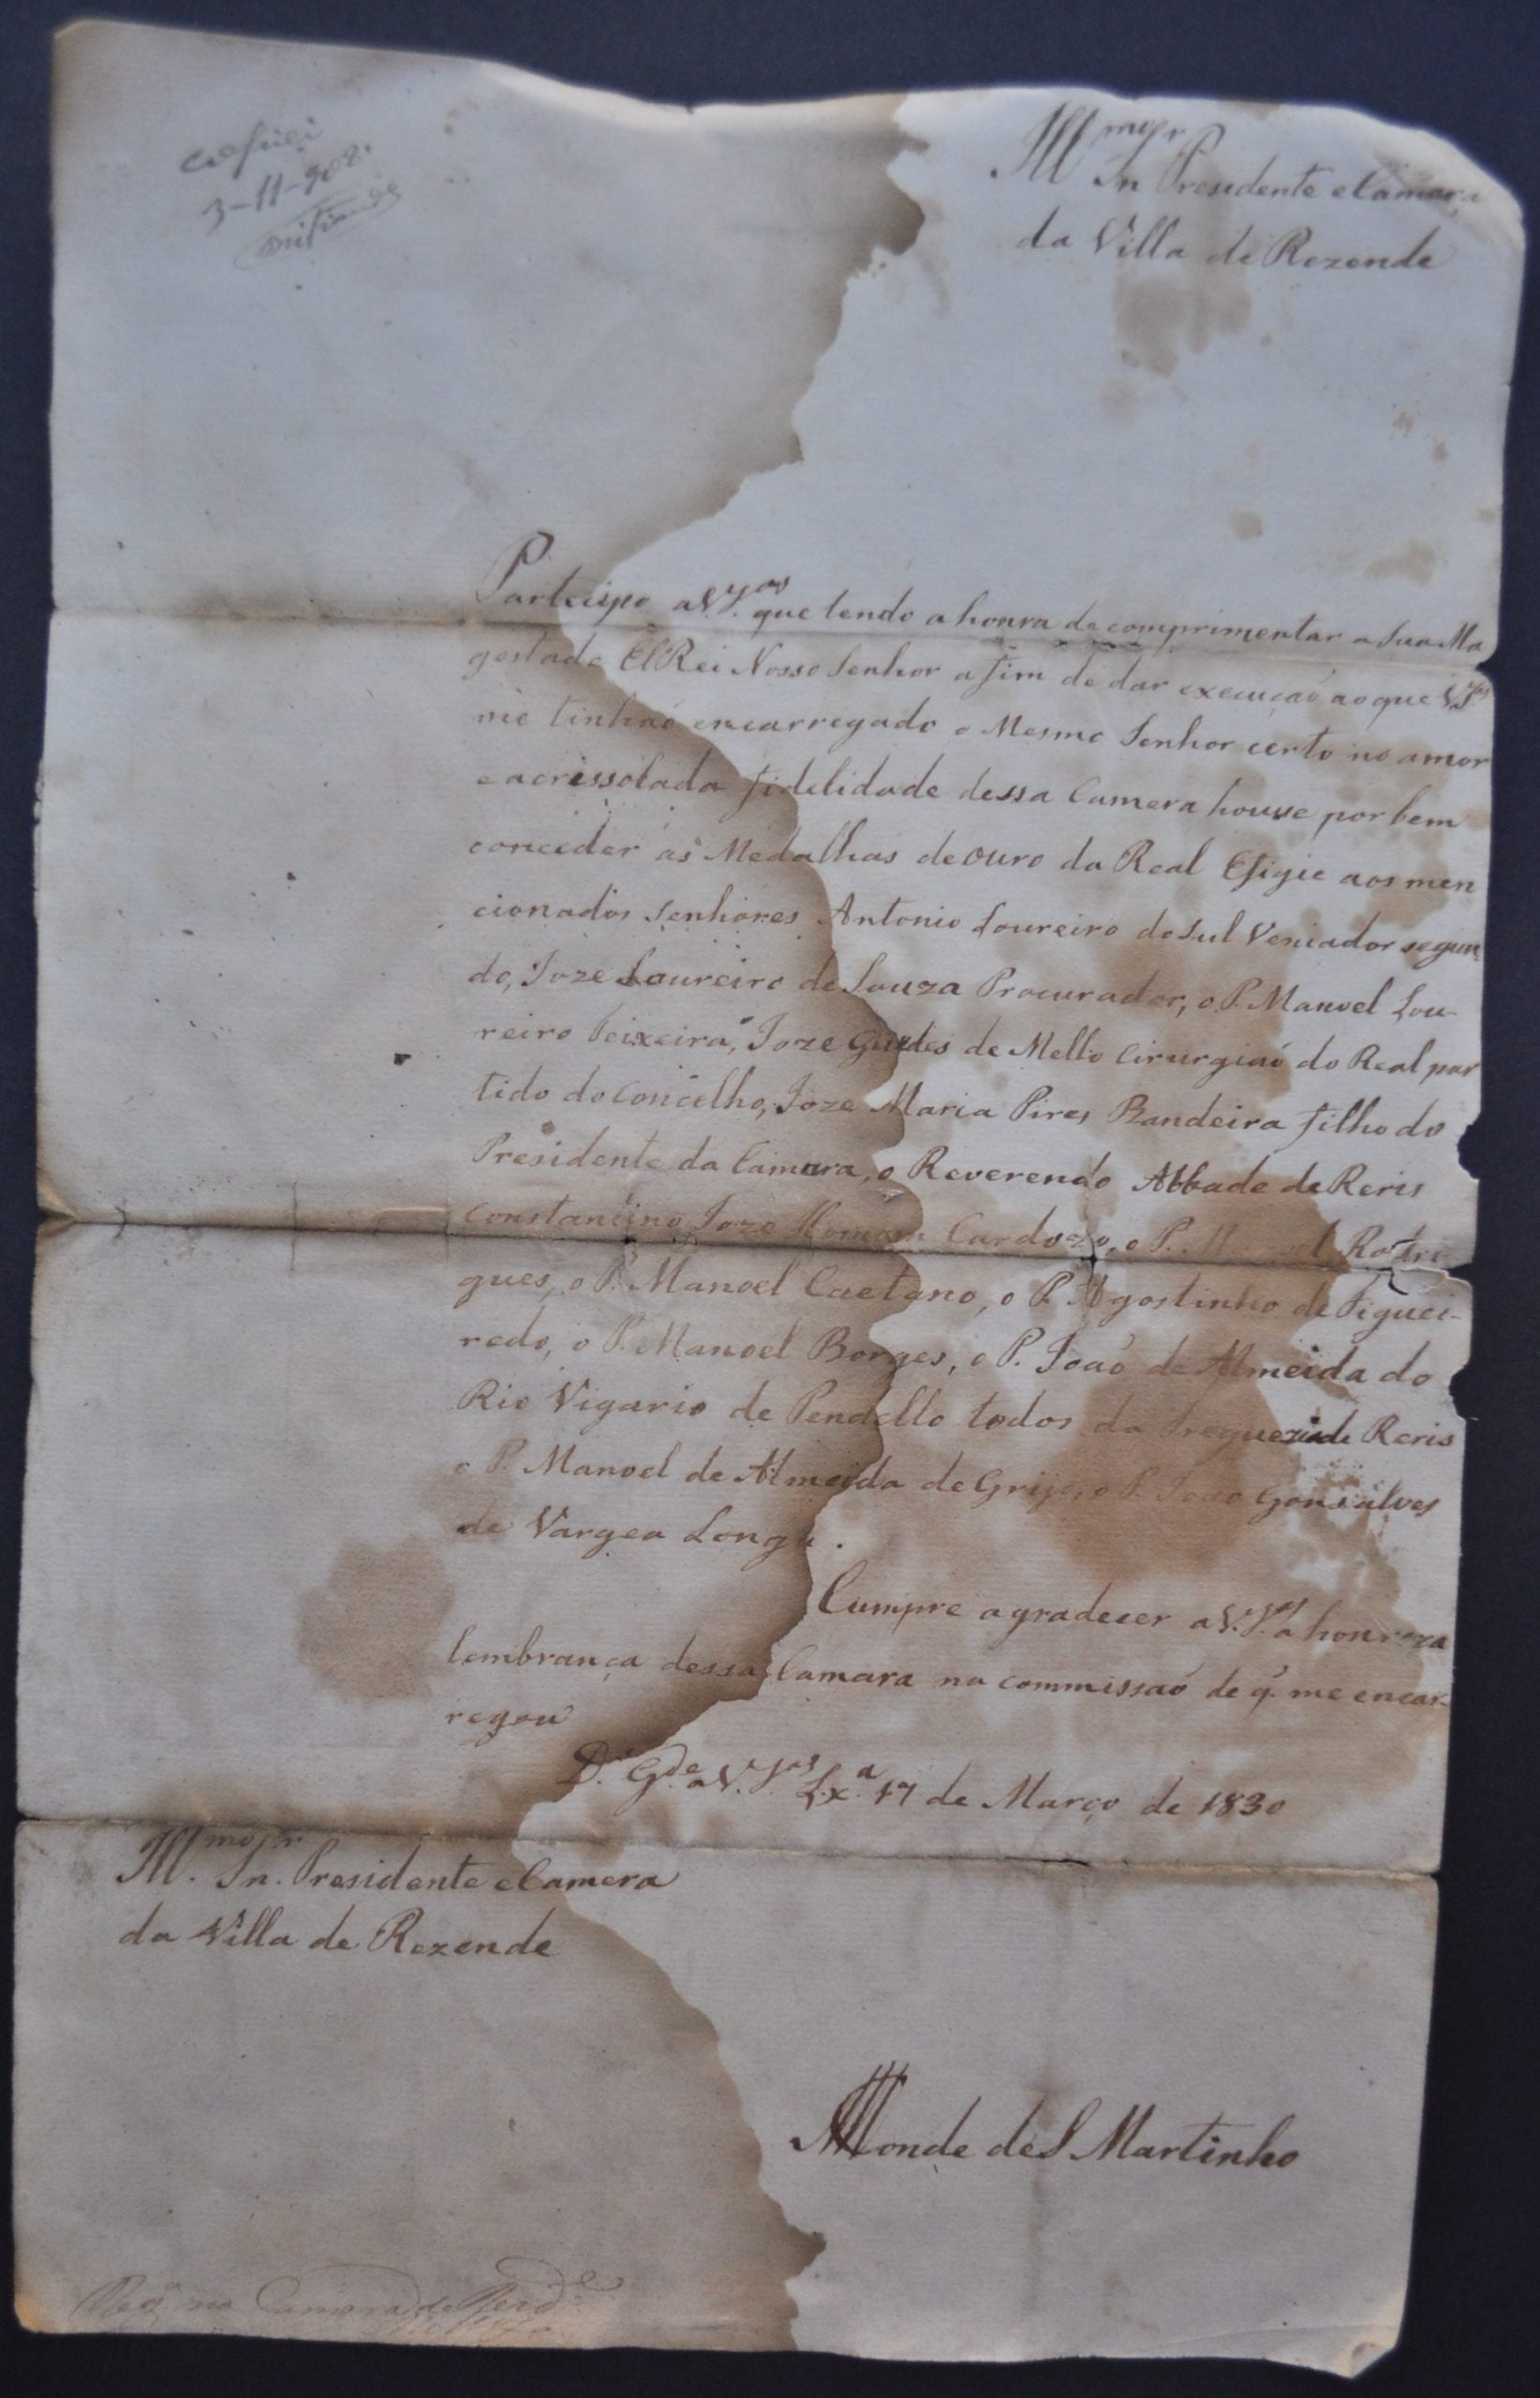 3-11-908.
Ill.mo Sr. Presidente e Camara
da Villa de Rezende
Partecipo a V. S.as que tendo a honra de comprimentar a Sua Ma
gestade El Rei Nosso Senhor a fim de dar execuçaõ ao que V. S.as
me tinhaõ encarregado o Mesmo Senhor certo no amor
e acrissolada fidelidade dessa Camera houve por bem
conceder as Medalhas de ouro da Real Efigie aos men
cionados senhores Antonio Loureiro do Sul Veriador segun
do, Joze Loureiro de Souza Procurador, o P. Manoel Lou-
reiro Teixeira, Joze Guedes de Mello Cirurgiaõ do Real par
tido do concelho, Joze Maria Pires Bandeira filho do
Presidente da Camara, o Reverendo Abbade de Reris
Constantino Joze Cardozo, o P. Rodri-
gues, o P. Manoel Caetano, o P. Agostinho de Figuei-
redo, o P. Manoel Borges, o P. Joaõ de Almeida do
Rio Vigario de Pendello todos da Freguezia de Reris
o P. Manoel de Almeida de Grijo, o P. Joaõ Gonsalves
de Vargea Longa.
Cumpre agradecer a V. S.as a honroza
lembrança dessa Camara na commissaõ de q. me encar-
regou
D.s G.de a V. S.as Lx.a 17 de Março de 1830
Ill.mo Sr. Presidente e Camera
da Villa de Rezende
Conde de S Martinho
na Camara de